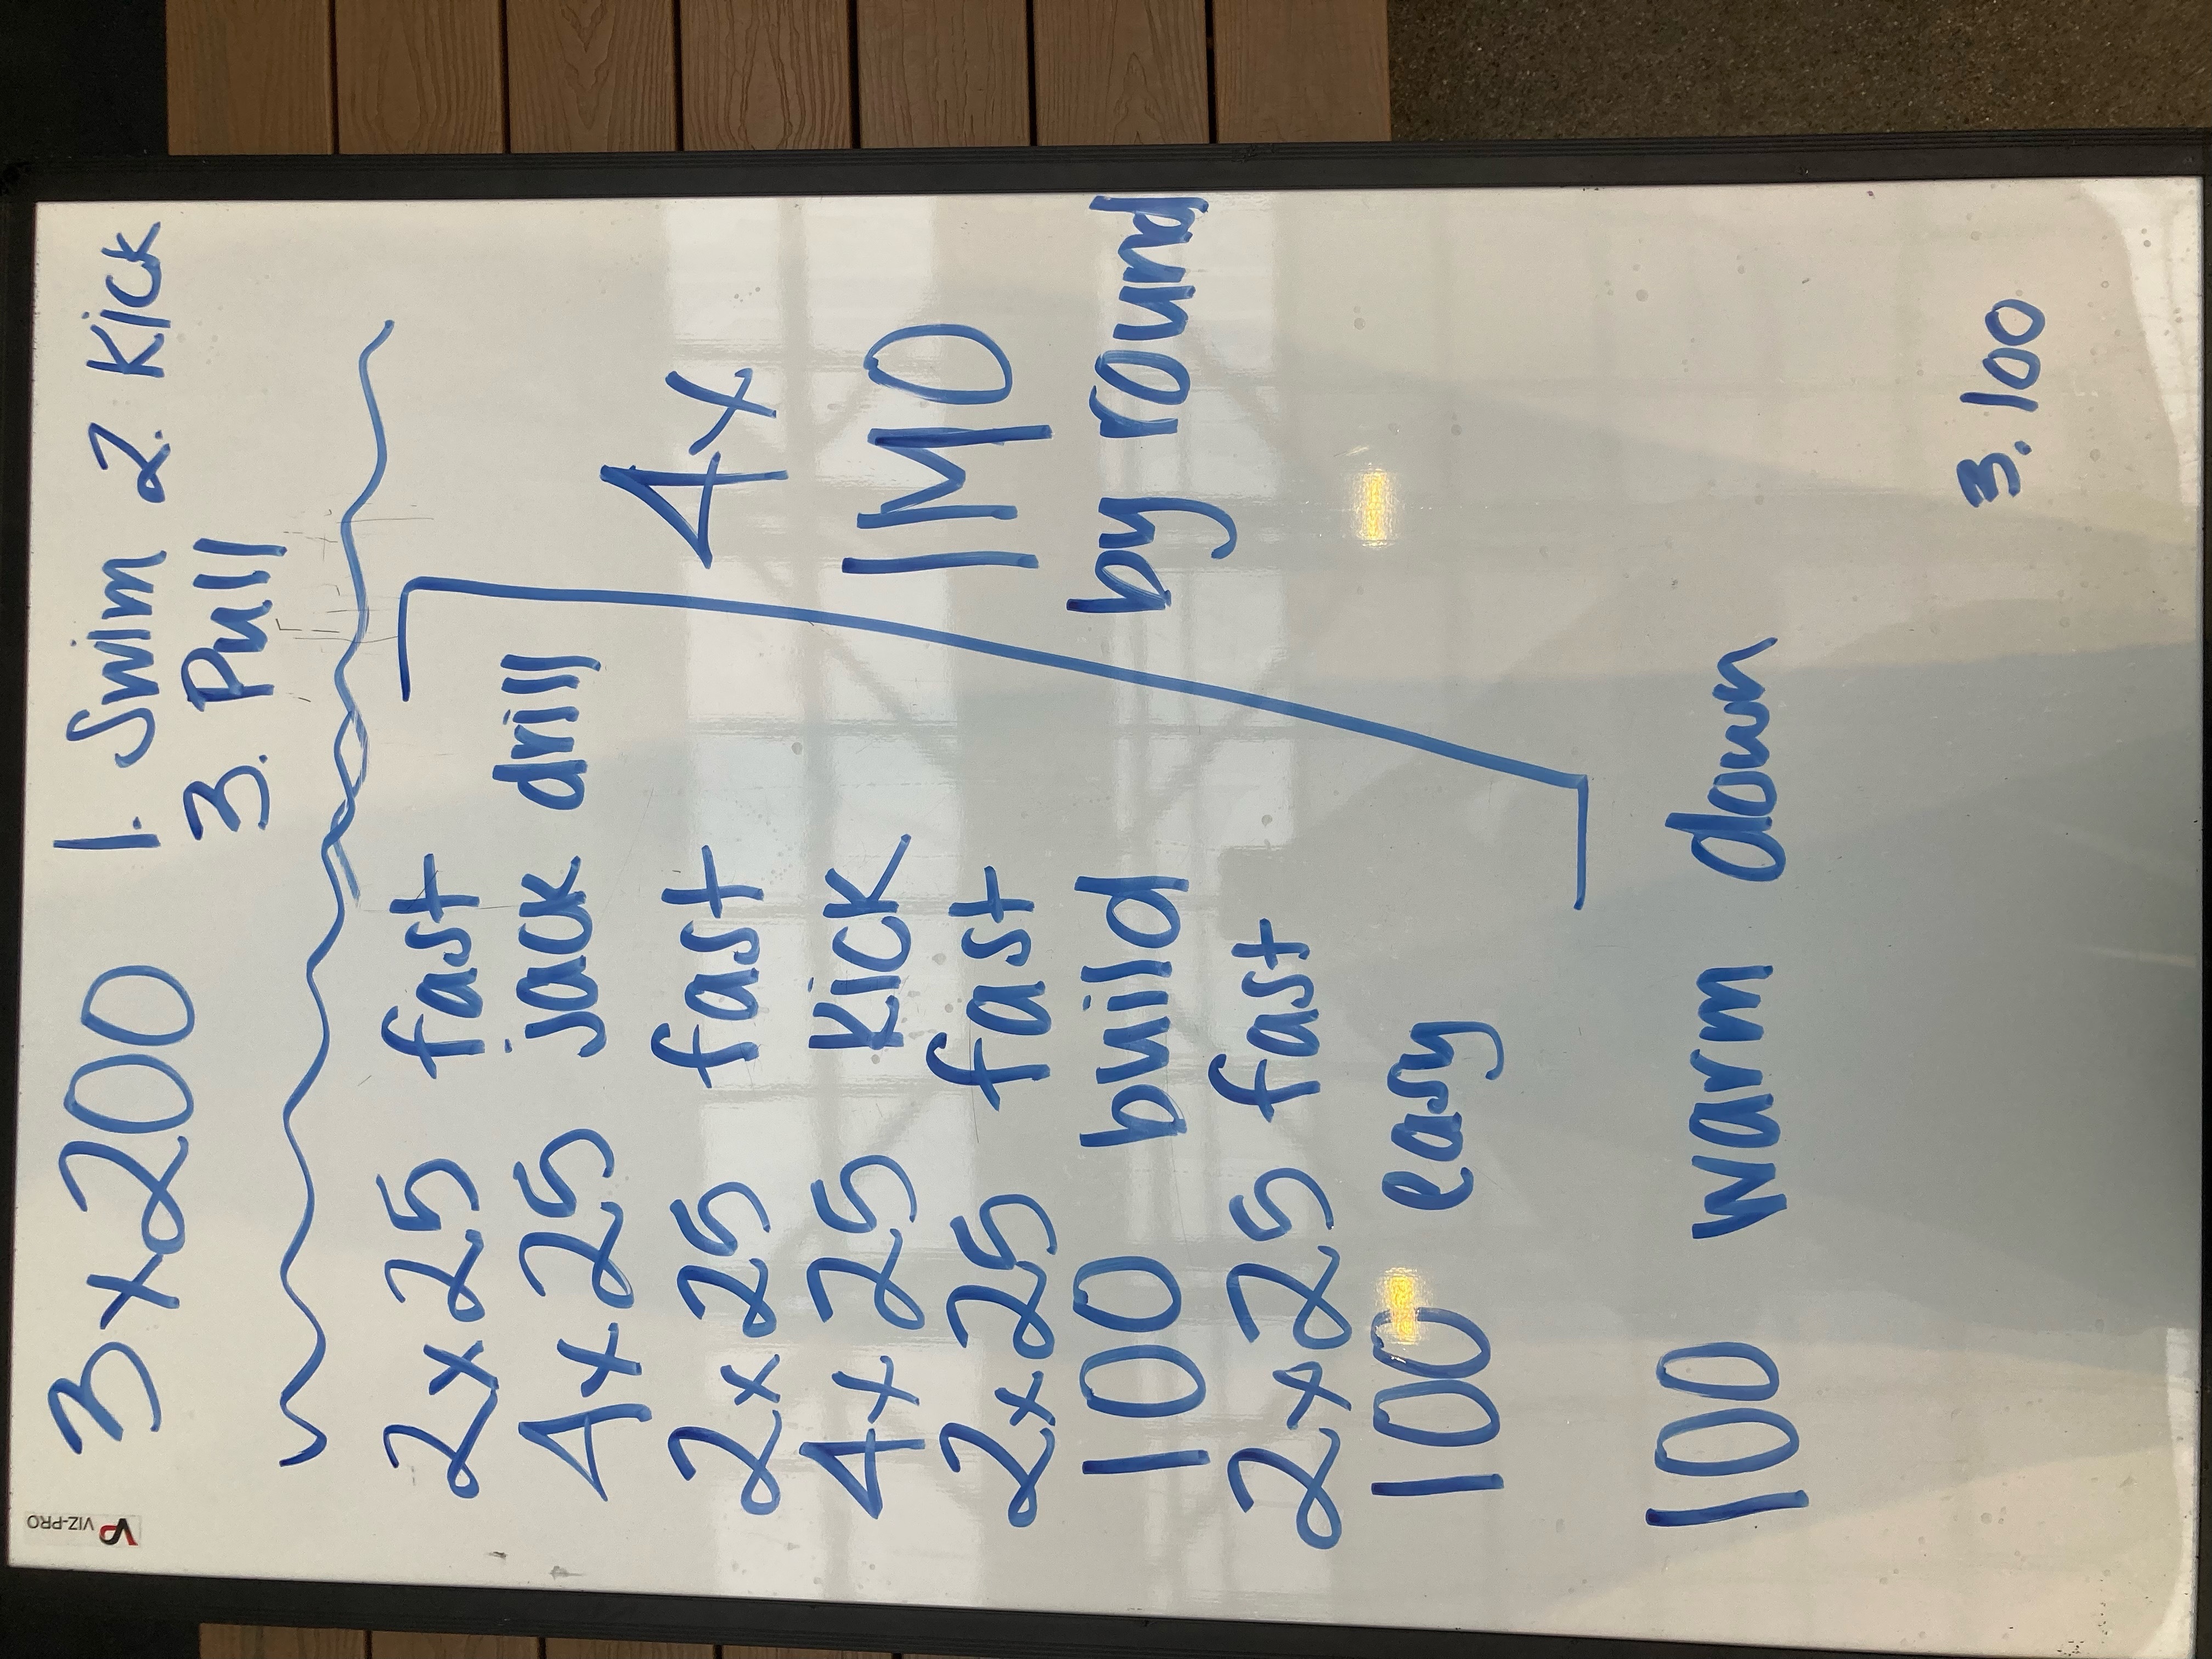 VP VIZ-PRO
3x200 1. Swim 2. Kick
3. Pull
2x25 fast
4x25 jack drill
2x25 fast
4x25 Kick
2x25 fast
100 build
2x25 fast
100 easy
4x
IMO
by round
100 warm down
3.100